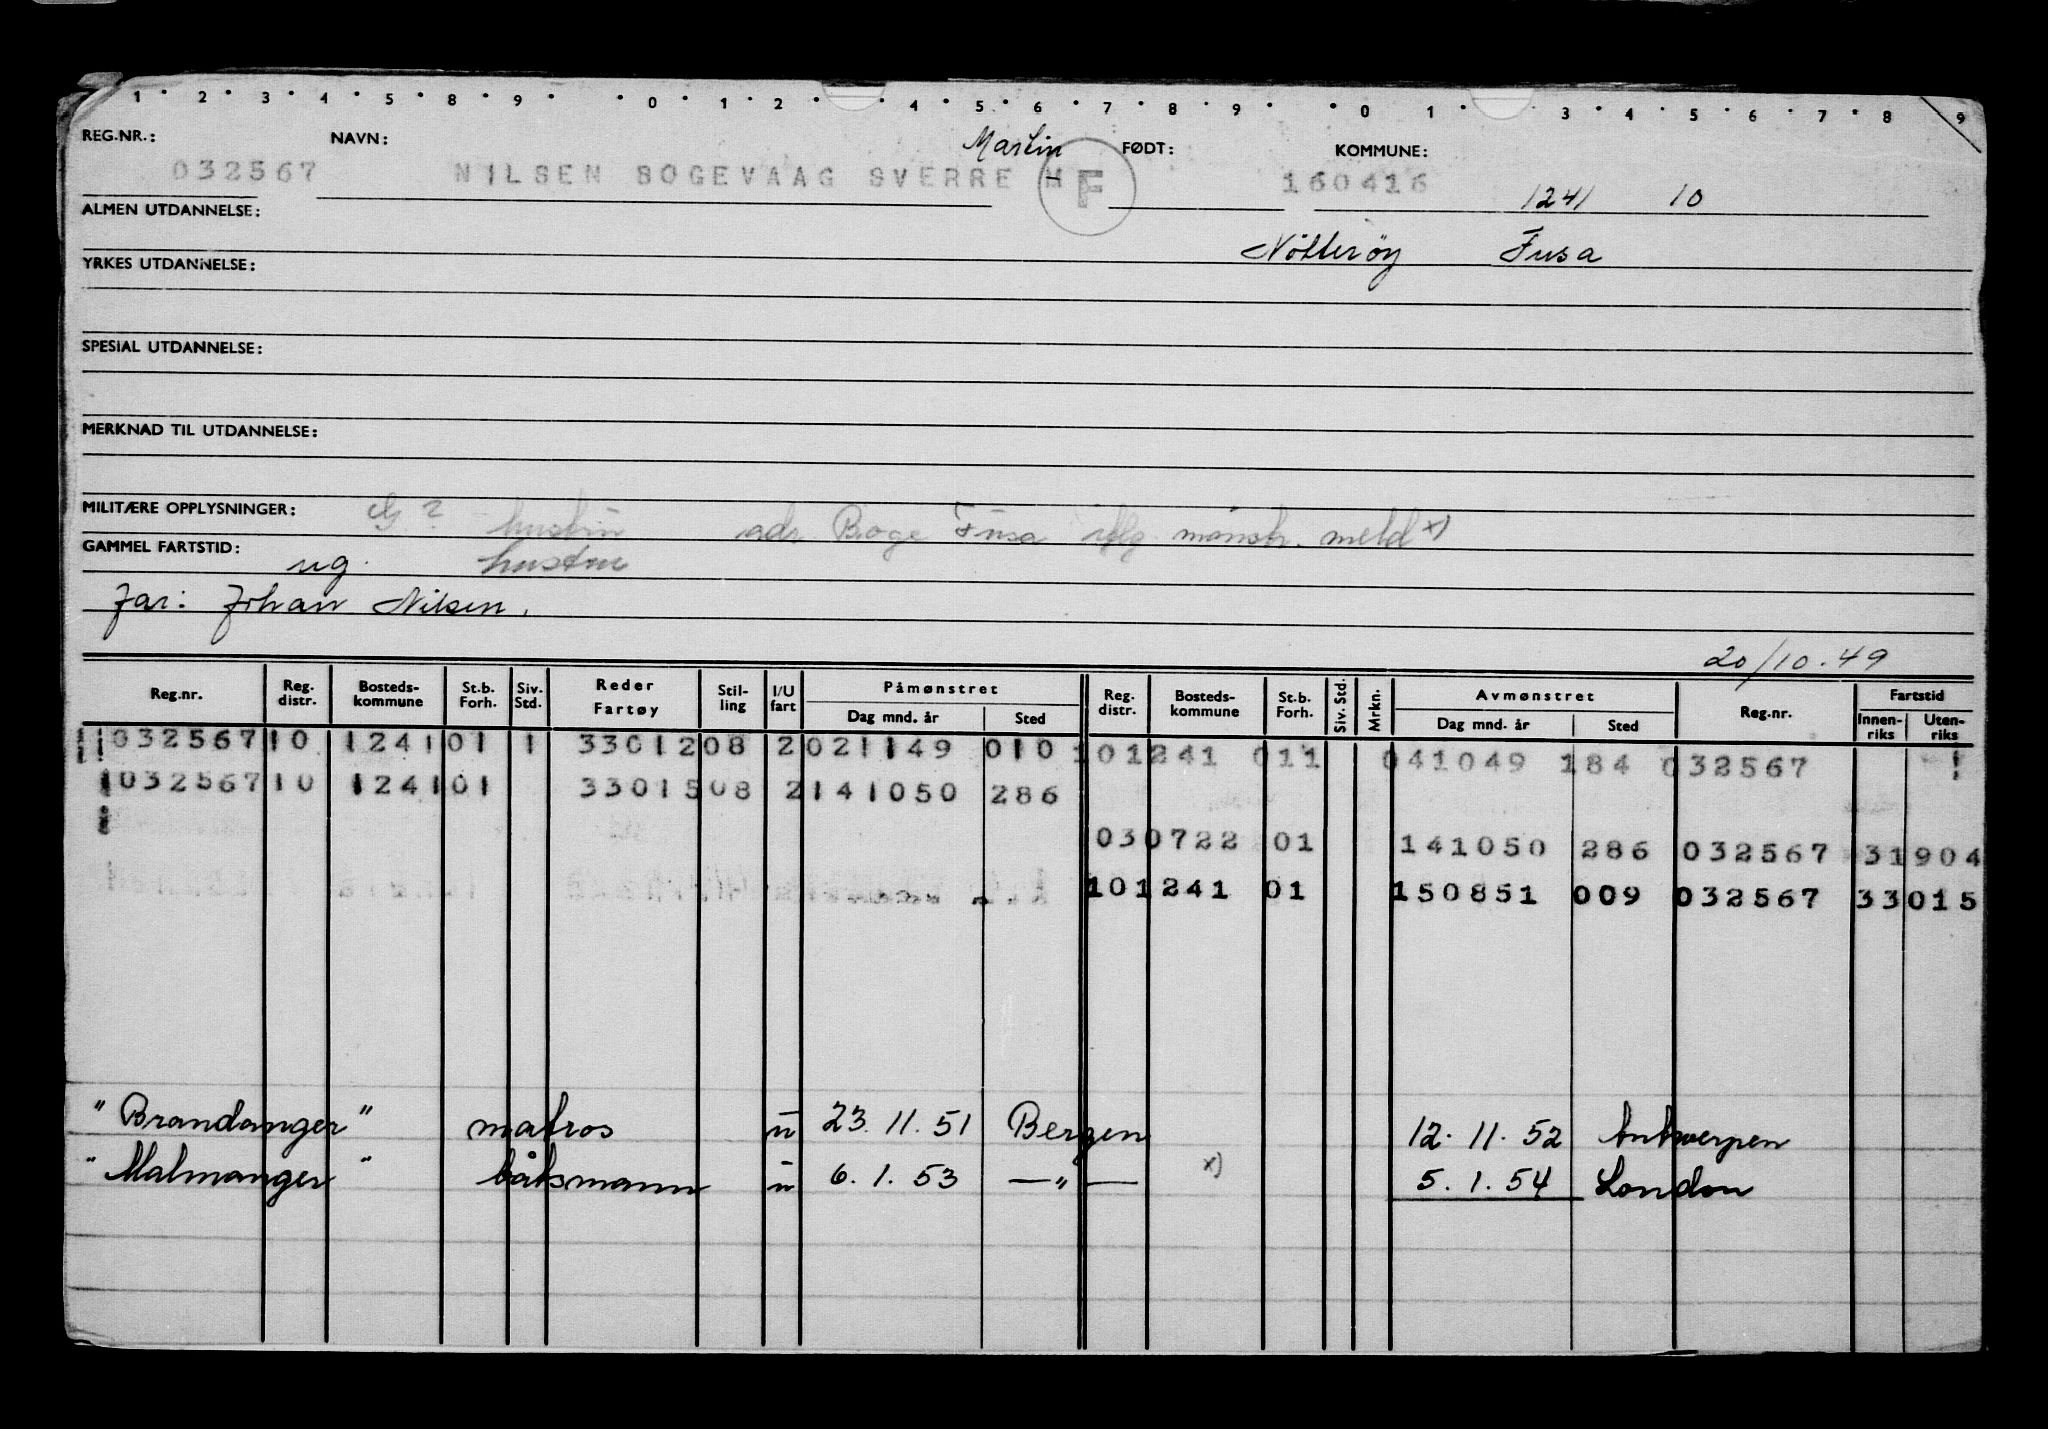 1 · 2 · 3 · 4 · 5 · 8 · 9 · · 0 · 1 · 2 · · 4 · 5 · 6 · 7 · 8 · 9 · · 0 · 1 · · 3 · 4 · 5 · 6 · 7 · 8 · 9
REG.NR.: NAVN: Martin FØDT: KOMMUNE:
032567 NILSEN BOGEVAAG SVERRE M F 160416 1241 10
ALMEN UTDANNELSE:
Nötteröy Fusa
YRKES UTDANNELSE:
SPESIAL UTDANNELSE:
MERKNAD TIL UTDANNELSE:
MILITÆRE OPPLYSNINGER: G? hustru adr Boge Fusa iflg mönstr. meld x)
GAMMEL FARTSTID: ug. hustru
Far: Johan Nilsen.
20/10.49
Reg.nr. Reg. distr. Bosteds-kommune St.b. Forh. Siv. Std. Reder Fartøy Stil-ling I/U fart Påmønstret Dag mnd. år Sted Reg. distr. Bosteds-kommune St.b. Forh. Siv. Std. Mrkn. Avmønstret Dag mnd. år Sted Reg.nr. Fartstid Innen-riks Uten-riks
032567 10 1241 01 1 33012 08 2 021149 010 10 1241 011 041049 184 032567
032567 10 1241 01 33015 08 2 141050 286
03 0722 01 141050 286 032567 31904
10 1241 01 150851 009 032567 33015
"Brandanger" matros u 23.11.51 Bergen 12.11.52 Antwerpen
"Malmanger" båtsmann u 6.1.53 —"— x) 5.1.54 London